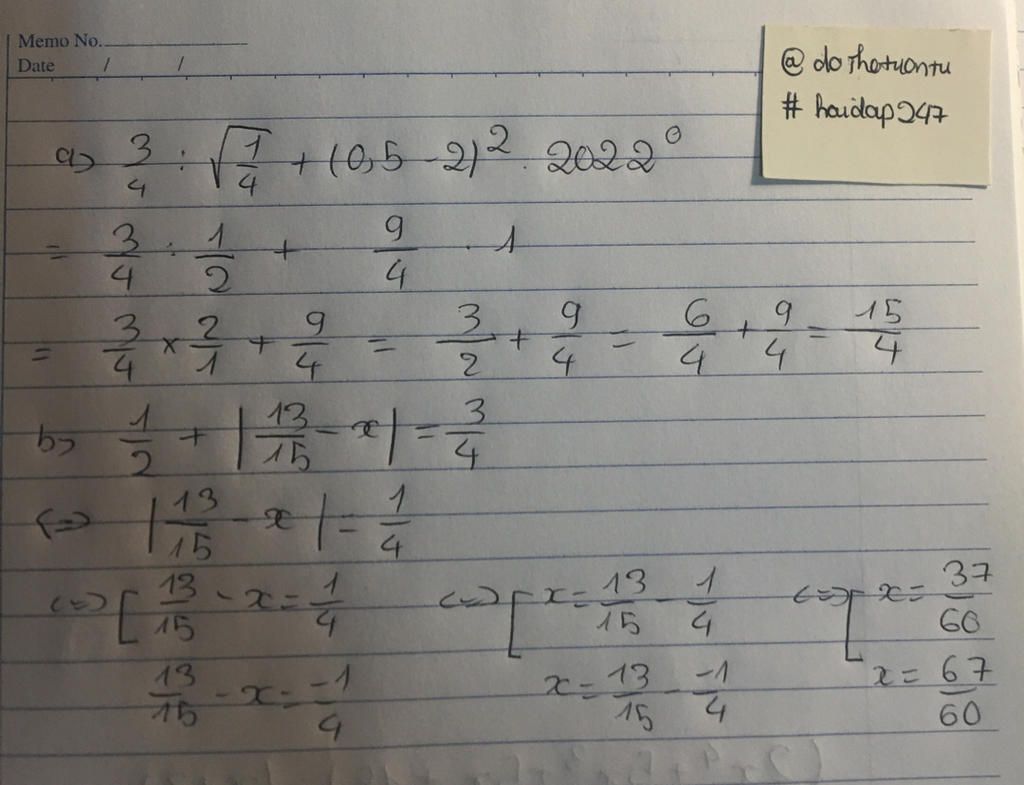 Memo No.
Date / /
@ dothotuontu
# hoidap247
a) 3/4 : √(1/4) + (0,5 - 2)² . 2022⁰
= 3/4 : 1/2 + 9/4 . 1
= 3/4 × 2/1 + 9/4 = 3/2 + 9/4 = 6/4 + 9/4 = 15/4
b) 1/2 + |13/15 - x| = 3/4
<=> |13/15 - x| = 1/4
<=> [ 13/15 - x = 1/4 <=> [ x = 13/15 - 1/4 <=> [ x = 37/60
13/15 - x = -1/4 x = 13/15 - -1/4 x = 67/60